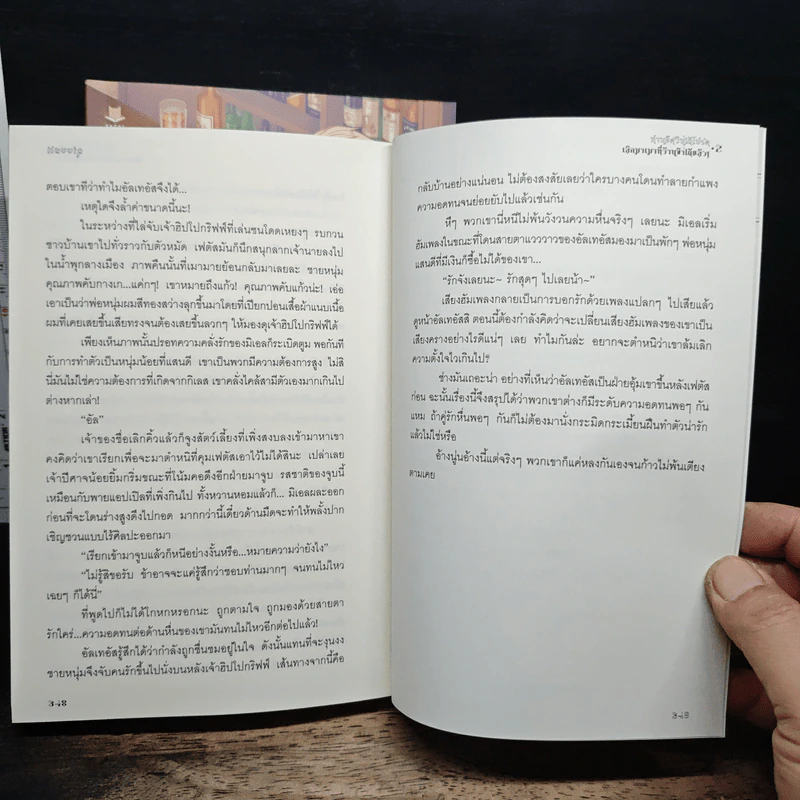 ตอบเขาทีว่าทำไมอัลเทอัสจึงได้...
เหตุใดจึงล้ำค่าขนาดนี้นะ!
ในระหว่างที่ไล่จับเจ้าฮิปโปกริฟฟ์ที่เล่นซนโดดเหยงๆ รบกวน
ชาวบ้านเขาไปทั่วราวกับตัวหมัด เฟตัสมันก็นึกสนุกลากเจ้านายลงไป
ในน้ำพุกลางเมือง ภาพคืนนั้นที่เมามายย้อนกลับมาเลยละ ชายหนุ่ม
คุณภาพคับกางเก...แค่กๆ! เขาหมายถึงแก้ว! คุณภาพคับแก้วน่ะ! เอ่อ
เอาเป็นว่าพ่อหนุ่มผมสีทองสว่างลุกขึ้นมาโดยที่เปียกปอนเสื้อผ้าแนบเนื้อ
ผมที่เคยเสยขึ้นเสียทรงจนต้องเสยขึ้นลวกๆ ให้มองดุเจ้าฮิปโปกริฟฟ์ได้
เพียงเห็นภาพนั้นปรอทความคลั่งรักของมิเอลก็ระเบิดตูม พอกันที
กับการทำตัวเป็นหนุ่มน้อยที่แสนดี เขาเป็นพวกมีความต้องการสูง ไม่สิ
นี่มันไม่ใช่ความต้องการที่เกิดจากกิเลส เขาคลั่งไคล้สามีตัวเองมากเกินไป
ต่างหากเล่า!
“อัล”
เจ้าของชื่อเลิกคิ้วแล้วก็จูงสัตว์เลี้ยงที่เพิ่งสงบลงเข้ามาหาเขา
คงคิดว่าเขาเรียกเพื่อจะมาตำหนิที่คุมเฟตัสเอาไว้ไม่ได้สินะ เปล่าเลย
เจ้าปีศาจน้อยยิ้มกริ่มขณะที่โน้มคอดึงอีกฝ่ายมาจูบ รสชาติของจูบนี้
เหมือนกับพายแอปเปิลที่เพิ่งกินไป ทั้งหวานหอมแล้วก็... มิเอลผละออก
ก่อนที่จะโดนร่างสูงดึงไปกอด มากกว่านี้เดี๋ยวด้านมืดจะทำให้พลั้งปาก
เชิญชวนแบบไร้ศิลปะออกมา
“เรียกเข้ามาจูบแล้วก็หนีอย่างงั้นหรือ...หมายความว่ายังไง”
“ไม่รู้สิขอรับ ข้าอาจจะแค่รู้สึกว่าชอบท่านมากๆ จนทนไม่ไหว
เฉยๆ ก็ได้นี่”
ที่พูดไปก็ไม่ได้โกหกหรอกนะ ถูกตามใจ ถูกมองด้วยสายตา
รักใคร่...ความอดทนต่อด้านหื่นของเขามันทนไม่ไหวอีกต่อไปแล้ว!
อัลเทอัสรู้สึกได้ว่ากำลังถูกชื่นชมอยู่ในใจ ดังนั้นแทนที่จะงุนงง
ชายหนุ่มจึงจับคนรักขึ้นไปนั่งบนหลังเจ้าฮิปโปกริฟฟ์ เส้นทางจากนี้คือ
กลับบ้านอย่างแน่นอน ไม่ต้องสงสัยเลยว่าใครบางคนโดนทำลายกำแพง
ความอดทนจนย่อยยับไปแล้วเช่นกัน
หึๆ พวกเขานี่หนีไม่พ้นวังวนความหื่นจริงๆ เลยนะ มิเอลเริ่ม
ฮัมเพลงในขณะที่โดนสายตาแวววาวของอัลเทอัสมองมาเป็นพักๆ พ่อหนุ่ม
แสนดีที่มีเงินก็ซื้อไม่ได้ของเขา...
“รักจังเลยนะ~ รักสุดๆ ไปเลยน้า~”
เสียงฮัมเพลงกลายเป็นการบอกรักด้วยเพลงแปลกๆ ไปเสียแล้ว
ดูหน้าอัลเทอัสสิ ตอนนี้ต้องกำลังคิดว่าจะเปลี่ยนเสียงฮัมเพลงของเขาเป็น
เสียงครางอย่างไรดีแน่ๆ เลย ทำไมกันล่ะ อยากจะตำหนิว่าเขาล้มเลิก
ความตั้งใจไวเกินไป?
ช่างมันเถอะน่า อย่างที่เห็นว่าอัลเทอัสเป็นฝ่ายอุ้มเขาขึ้นหลังเฟตัส
ก่อน ฉะนั้นเรื่องนี้จึงสรุปได้ว่าพวกเขาต่างก็มีระดับความอดทนพอๆ กัน
แหม ถ้าคู่รักหื่นพอๆ กันก็ไม่ต้องมานั่งกระมิดกระเมี้ยนฝืนทำตัวน่ารัก
แล้วไม่ใช่หรือ
อ้างนู่นอ้างนี้แต่จริงๆ พวกเขาก็แค่หลงกันเองจนก้าวไม่พ้นเตียง
ตามเคย